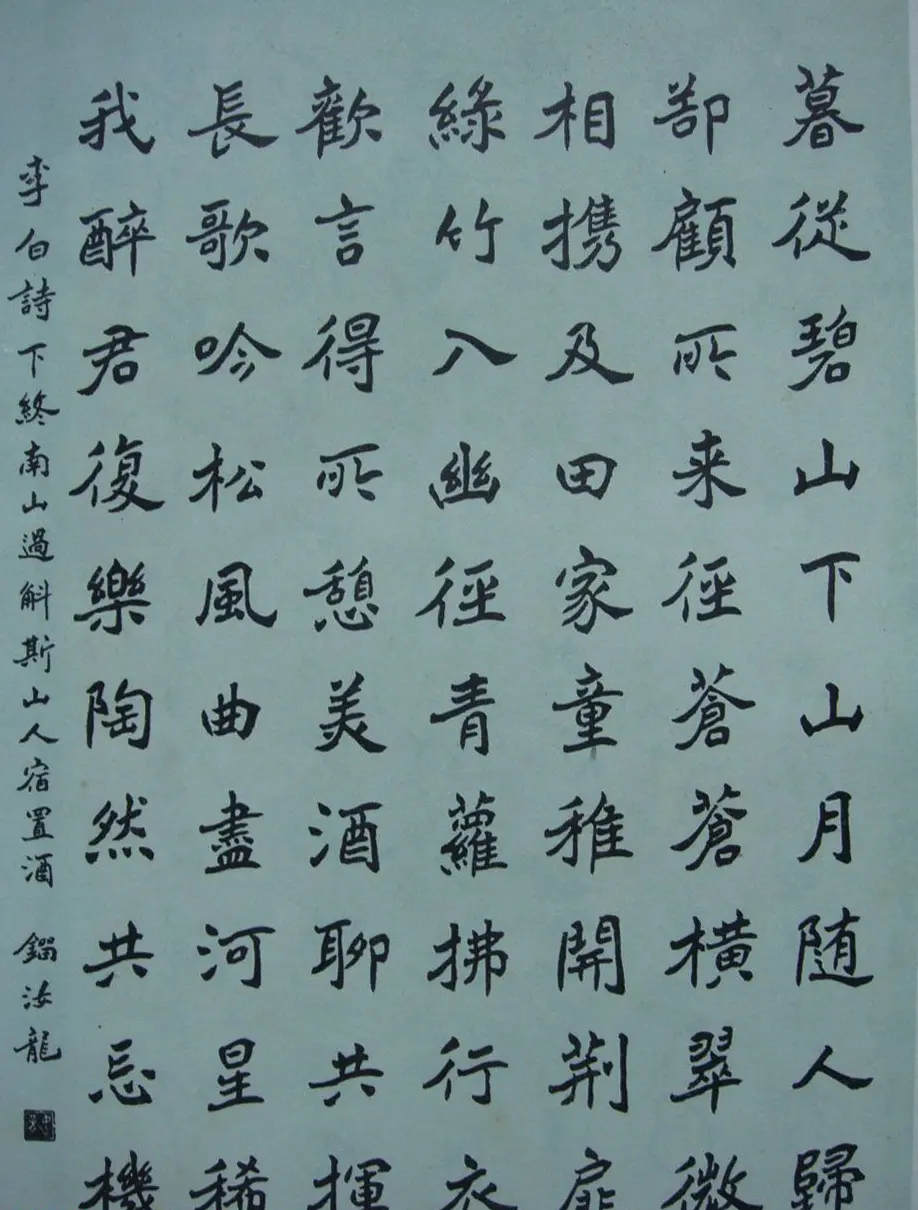 暮從碧山下山月随人歸
郤顧所来徑蒼蒼橫翠微
相携及田家童稚開荆扉
綠竹入幽徑青蘿拂行衣
歡言得所憩美酒聊共揮
長歌吟松風曲盡河星稀
我醉君復樂陶然共忘機
李白詩下終南山過斛斯山人宿置酒 鎦汝龍